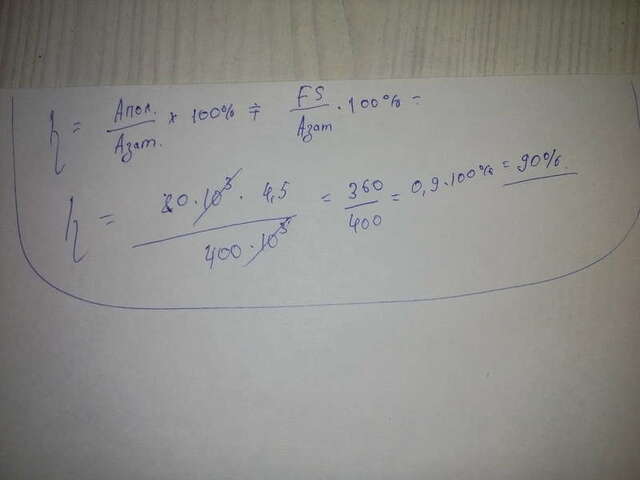 η = Aпол. / Aзат. × 100% = FS / Aзат · 100% =
η = 80·10³ · 4,5 / 400·10³ = 360 / 400 = 0,9·100% = 90%.